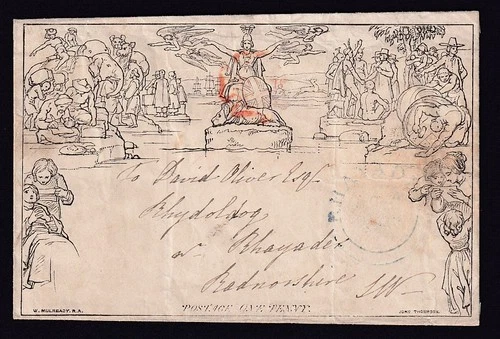 To David Oliver Esqr
Rhydoldog
nr Rhayader
Radnorshire
SW
POSTAGE ONE PENNY.
W. MULREADY. R.A.
JOHN THOMPSON.